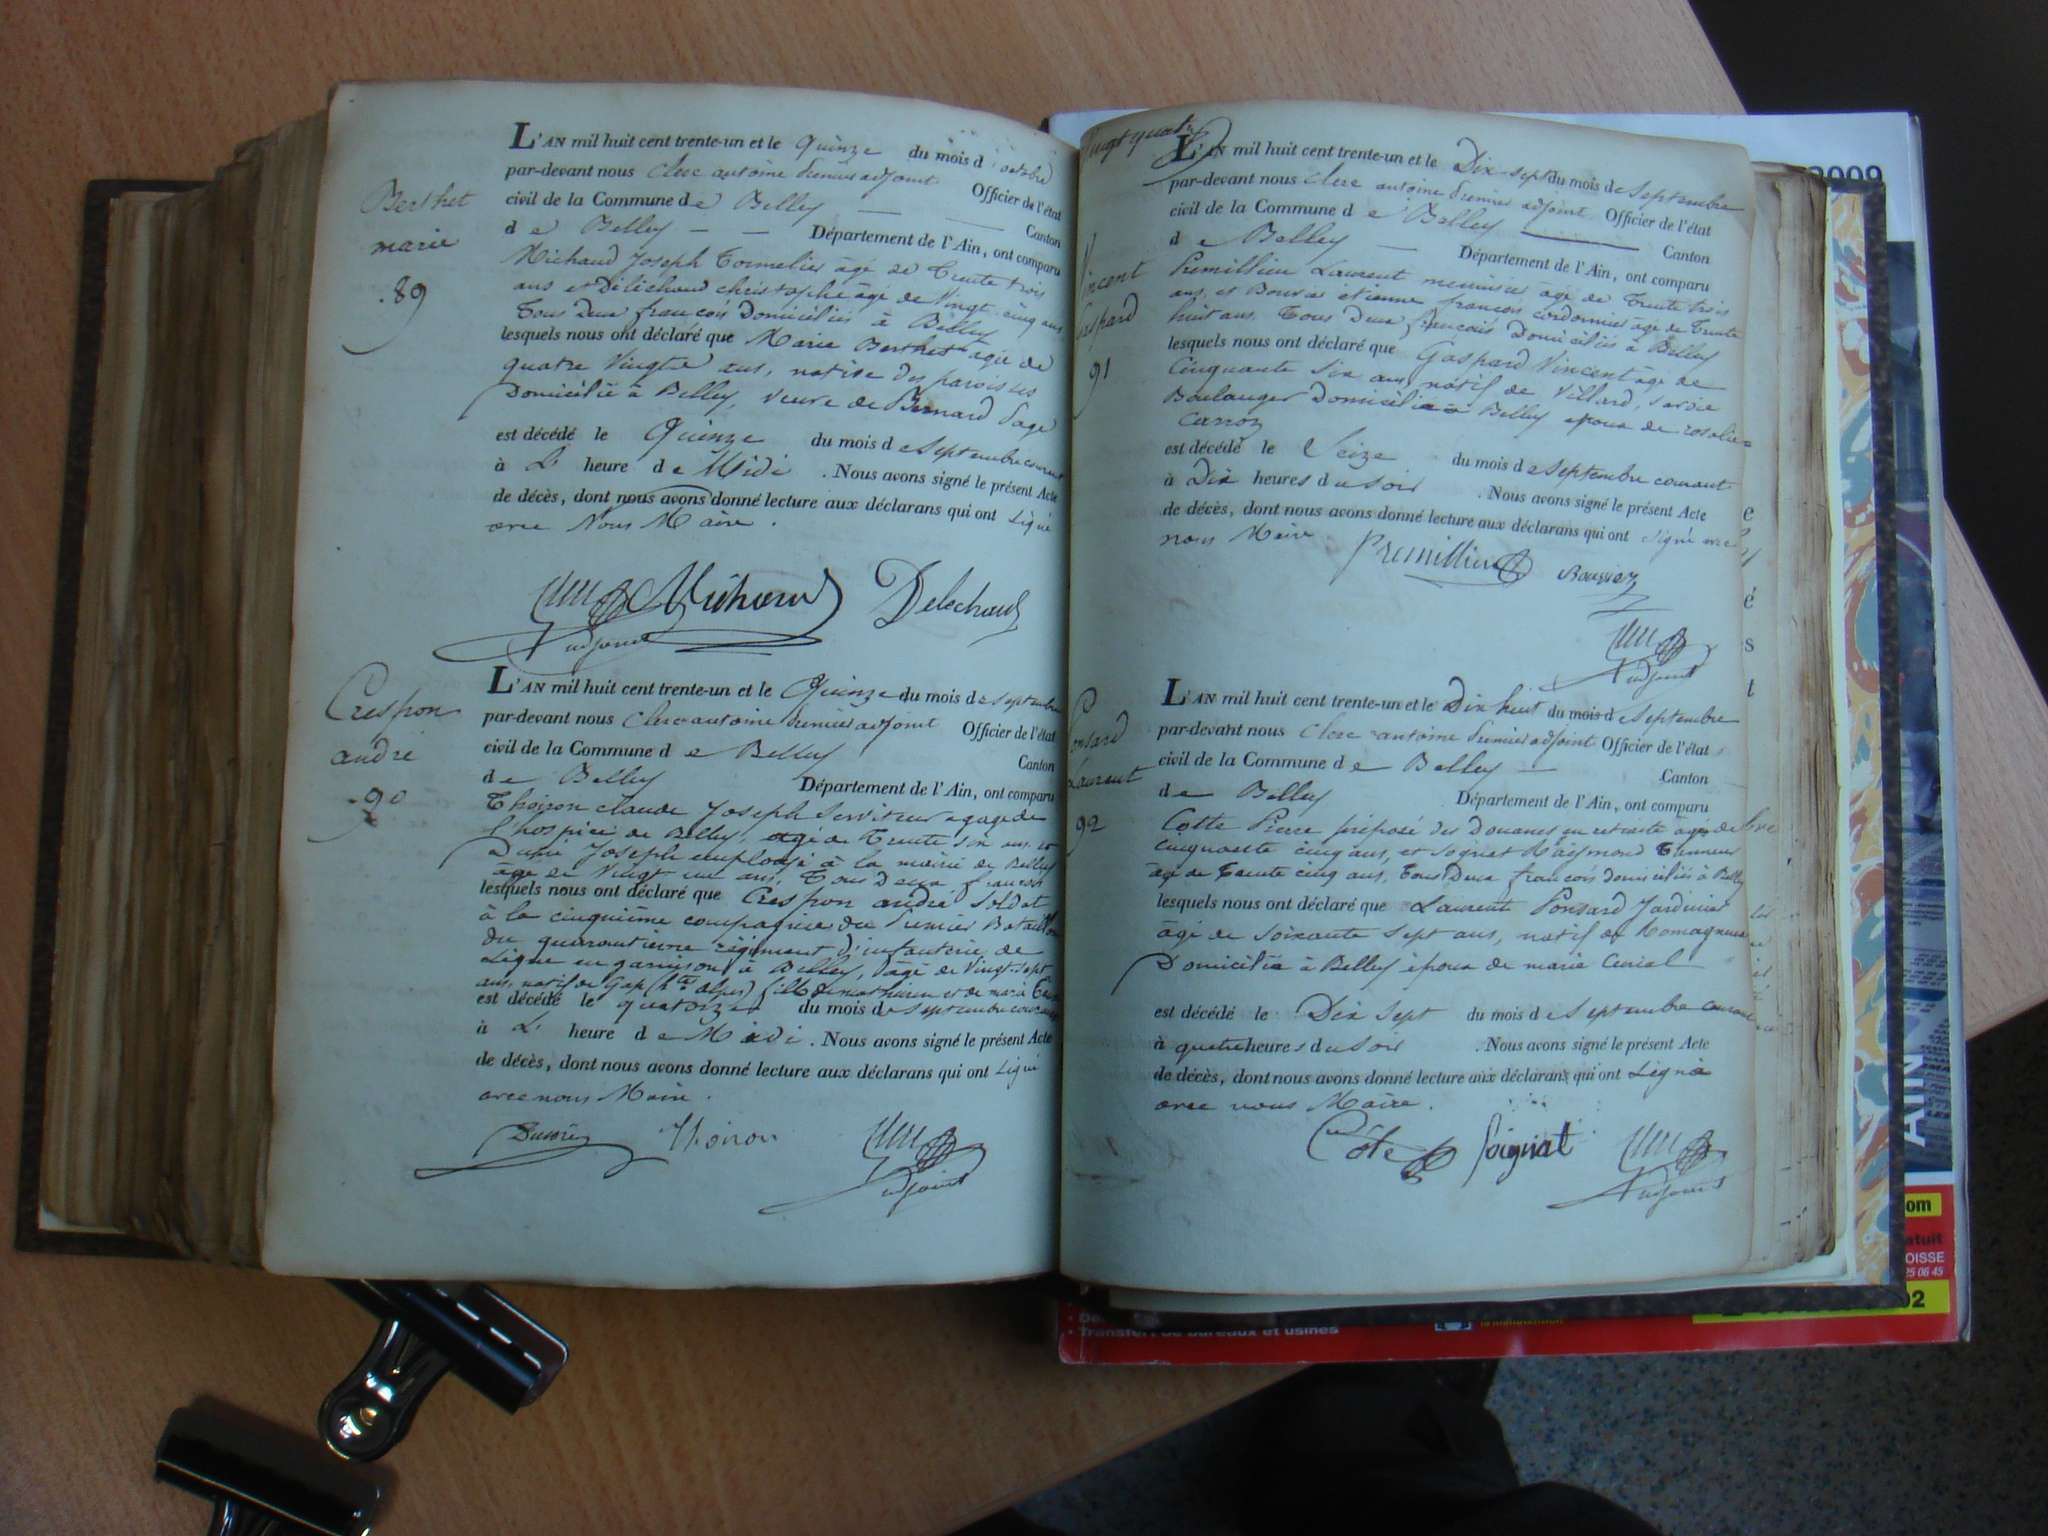 Berthet
marie
.89
L'AN mil huit cent trente-un et le Quinze du mois d octobre
par-devant nous Clerc antoine premier adjoint Officier de l'état
civil de la Commune de Belley Canton
de Belley Département de l'Ain, ont comparu
Michaud Joseph Tonnelier âgé de Trente trois
ans et Deléchaud christophe âgé de Vingt cinq ans
Tous Deux françois Domiciliés à Belley
lesquels nous ont déclaré que Marie Berthet agée de
quatre Vingt ans, native des paroisses
Domicilié à Belley, Veuve de Bernard Page
est décédé le Quinze du mois de Septembre courant
à L' heure de Midi . Nous avons signé le présent Acte
de décès, dont nous avons donné lecture aux déclarans qui ont signé
avec Nous Maire .
Michaud Delechaud
adjoint
Crespon
andré
.90
L'AN mil huit cent trente-un et le Quinze du mois de septembre
par-devant nous Clerc antoine premier adjoint Officier de l'état
civil de la Commune de Belley Canton
de Belley Département de l'Ain, ont comparu
Thoiron claude Joseph Serviteur a gage de
l'hospice de Belley, agé de Trente six ans et
Joseph employé à la mairie de Belley
âgé de Vingt un ans, Tous Deux françois
lesquels nous ont déclaré que Crespon andré Soldat
à la cinquième compagnie du Premier Bataillon
du quarantieme régiment d'infanterie de
Ligne en garnison à Belley, âgé de Vingt sept
ans, natif de Gap (htes alpes) fils de mathieu et de marie
est décédé le quatorze du mois de Septembre courant
à L' heure de Midi . Nous avons signé le présent Acte
de décès, dont nous avons donné lecture aux déclarans qui ont signé
avec nous Maire .
Thoiron
adjoint
Vingt quatre
Vincent
Gaspard
91
L'AN mil huit cent trente-un et le Dix sept du mois de Septembre
par-devant nous Clerc antoine premier adjoint Officier de l'état
civil de la Commune de Belley Canton
de Belley Département de l'Ain, ont comparu
Premillieu Laurent menuisier âgé de Trente trois
ans et Bouvier étienne françois cordonnier âgé de Trente
huit ans. Tous Deux françois Domiciliés à Belley
lesquels nous ont déclaré que Gaspard Vincent âgé de
Cinquante Six ans natif de Villard, Savoie
Boulanger Domicilié à Belley époux de rosalie
Carroz
est décédé le Seize du mois de Septembre courant
à Dix heures du soir . Nous avons signé le présent Acte
de décès, dont nous avons donné lecture aux déclarans qui ont signé avec
nous Maire
Premillieu
adjoint
Ponsard
Laurent
92
L'AN mil huit cent trente-un et le Dix huit du mois de Septembre
par-devant nous Clerc antoine premier adjoint Officier de l'état
civil de la Commune de Belley Canton
de Belley Département de l'Ain, ont comparu
Cotte Pierre préposé des Douanes en retraite âgé de
cinquante cinq ans, et Soignat Raymond Tanneur
âgé de Trente cinq ans, Tous Deux françois domiciliés à Belley
lesquels nous ont déclaré que Laurent Ponsard Jardinier
âgé de Soixante Sept ans, natif de Romagnieu
Domicilié à Belley époux de marie
est décédé le Dix Sept du mois de Septembre courant
à quatre heures du soir . Nous avons signé le présent Acte
de décès, dont nous avons donné lecture aux déclarans qui ont signé
avec nous Maire .
Côte Soignat
adjoint
2009
AIN
OISSE
25 06 45
Transfert de bureaux et usines